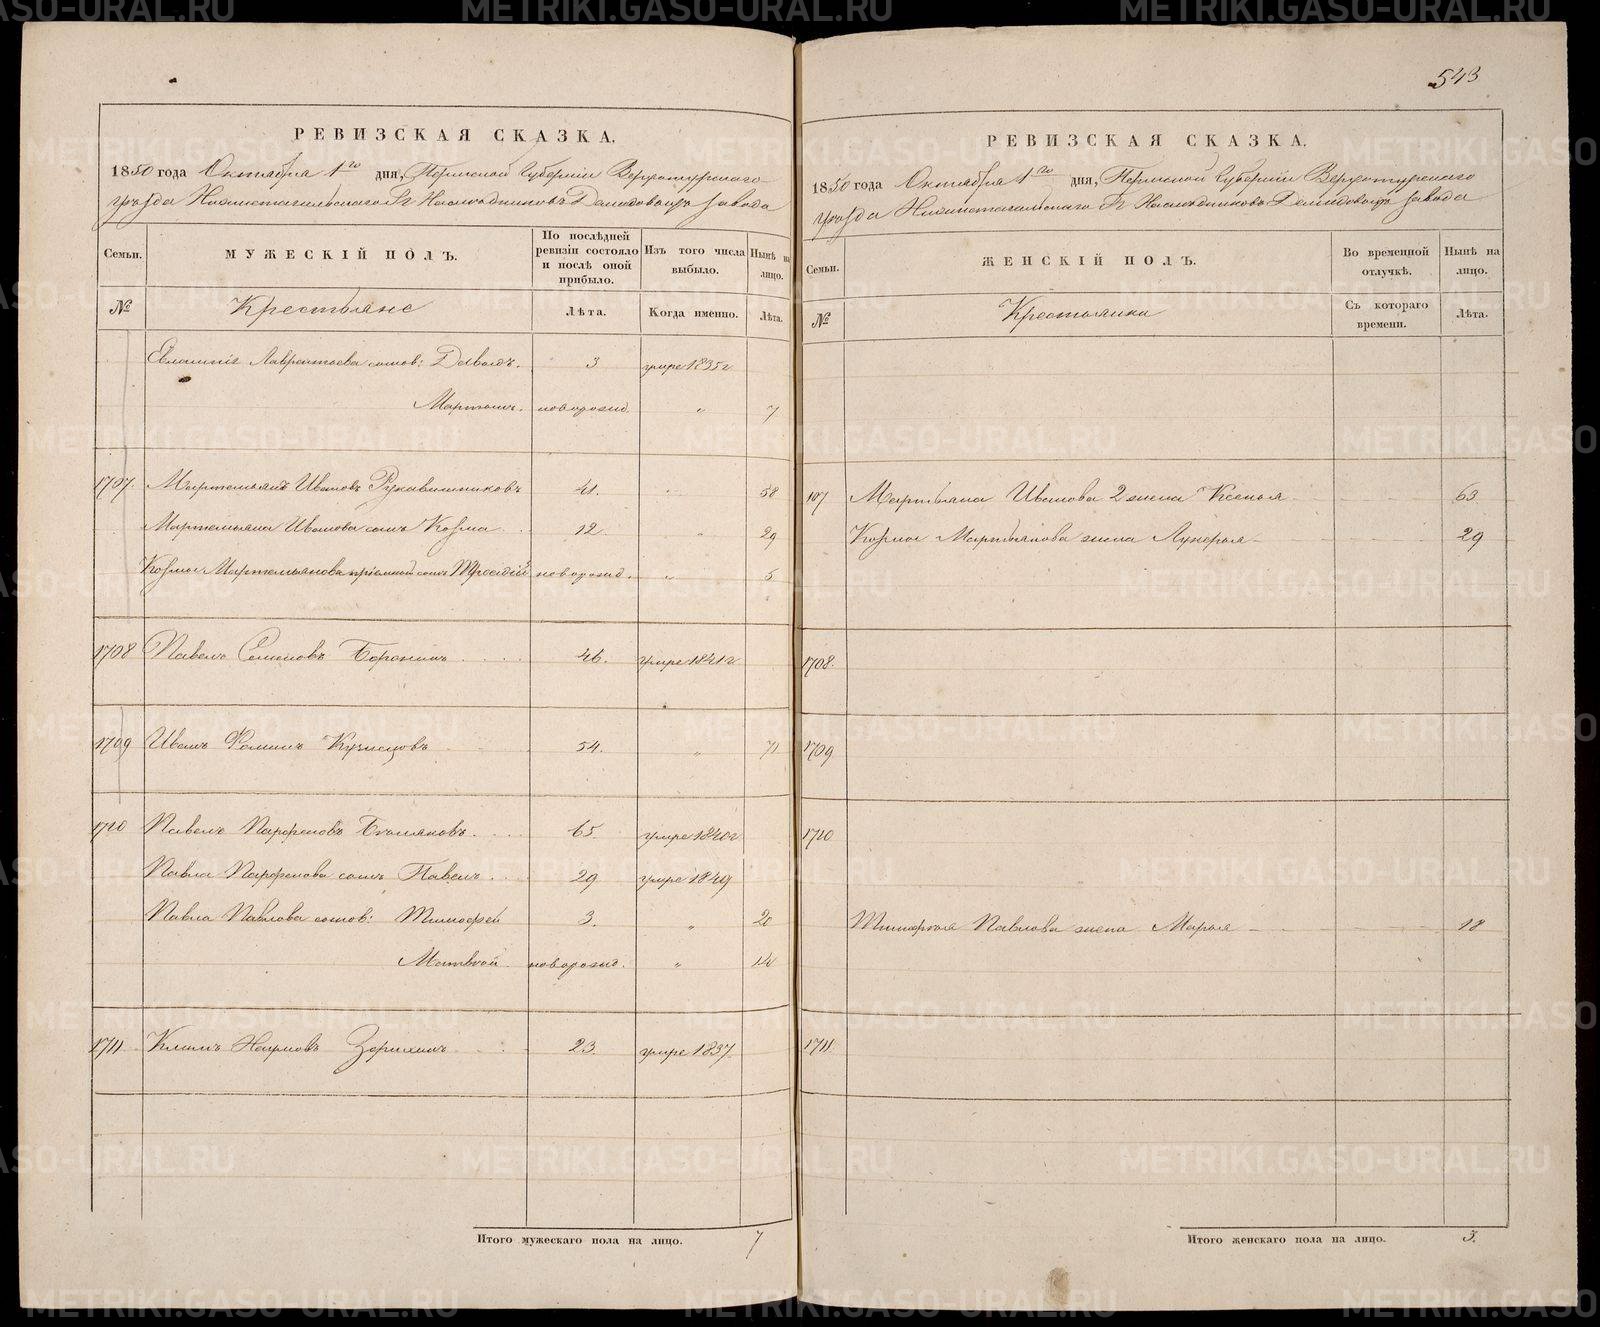 543
РЕВИЗСКАЯ СКАЗКА.
1850 года Октября 1го дня, Пермской Губернии Верхотурского
уѣзда Нижнетагильского Гг Наслѣдниковъ Демидовыхъ завода
Семьи. МУЖЕСКІЙ ПОЛЪ. По послѣдней ревизіи состояло и послѣ оной прибыло. Изъ того числа выбыло. Нынѣ на лицо.
№ Крестьяне Лѣта. Когда именно. Лѣта.
Лаврентьева сынов: Давыдъ. 3 умре 1835г
Мартынъ. новорожд. " 7
1707. Мартемьянъ Ивановъ Рукавишниковъ 41. " 58
Мартемьяна Иванова сынъ Козма 12. " 29
Козмы Мартемьянова приемной сынъ новорожд. " 5
1708 Павелъ Семеновъ 46. умре 1841г
1709 Иванъ Фоминъ Кузнецовъ 54. " 71
1710 Павелъ Парфеновъ Бѣляковъ. 65 умре 1840г
Павла Парфенова сынъ Павелъ. 29 умре 1849
Павла Павлова сынов: Тимофей 3. " 20
Матвѣй новорожд. " 14
1711 Климъ Наумовъ 23. умре 1837
Итого мужескаго пола на лицо. 7
РЕВИЗСКАЯ СКАЗКА.
1850 года Октября 1го дня, Пермской Губерніи Верхотурского
уѣзда Нижнетагильского Гг Наслѣдниковъ Демидовыхъ завода
Семьи. ЖЕНСКІЙ ПОЛЪ. Во временной отлучкѣ. Нынѣ на лицо.
№ Крестьянки Съ котораго времени. Лѣта.
107 Мартьяна Иванова 2 жена Ксенья 63
Козмы Мартьянова жена Лукерья 29
1708.
1709
1710
Тимофея Павлова жена Марья 18
1711
Итого женскаго пола на лицо. 3.
METRIKI.GASO-URAL.RU